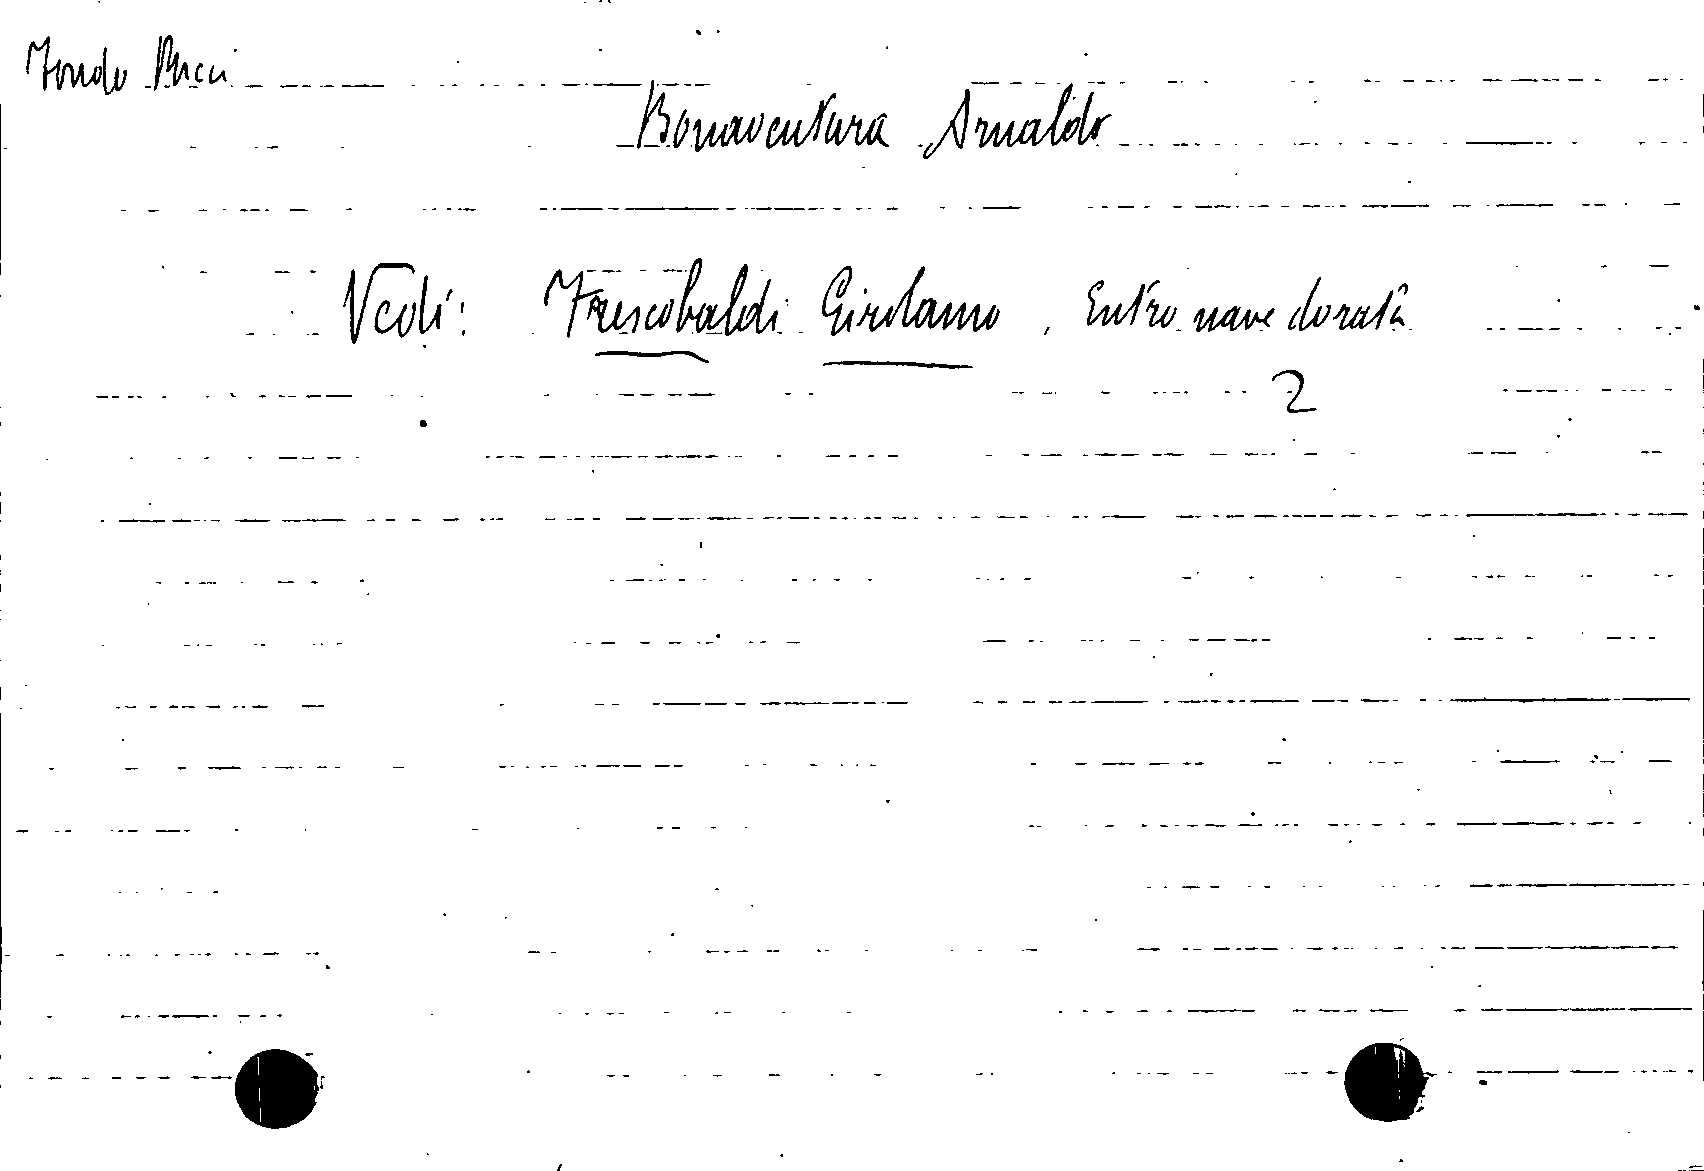 Fondo Pucci
Bonaventura Arnaldo
Vedi: Frescobaldi Girolamo, Entro nave dorata
2